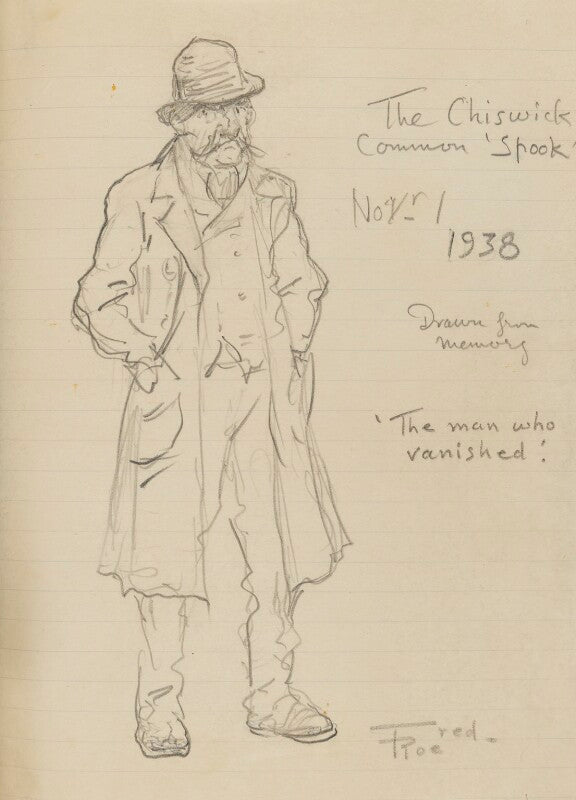 The Chiswick
Common 'Spook'
Novr 1
1938
Drawn from
memory
'The man who
vanished'.
Fred Roe